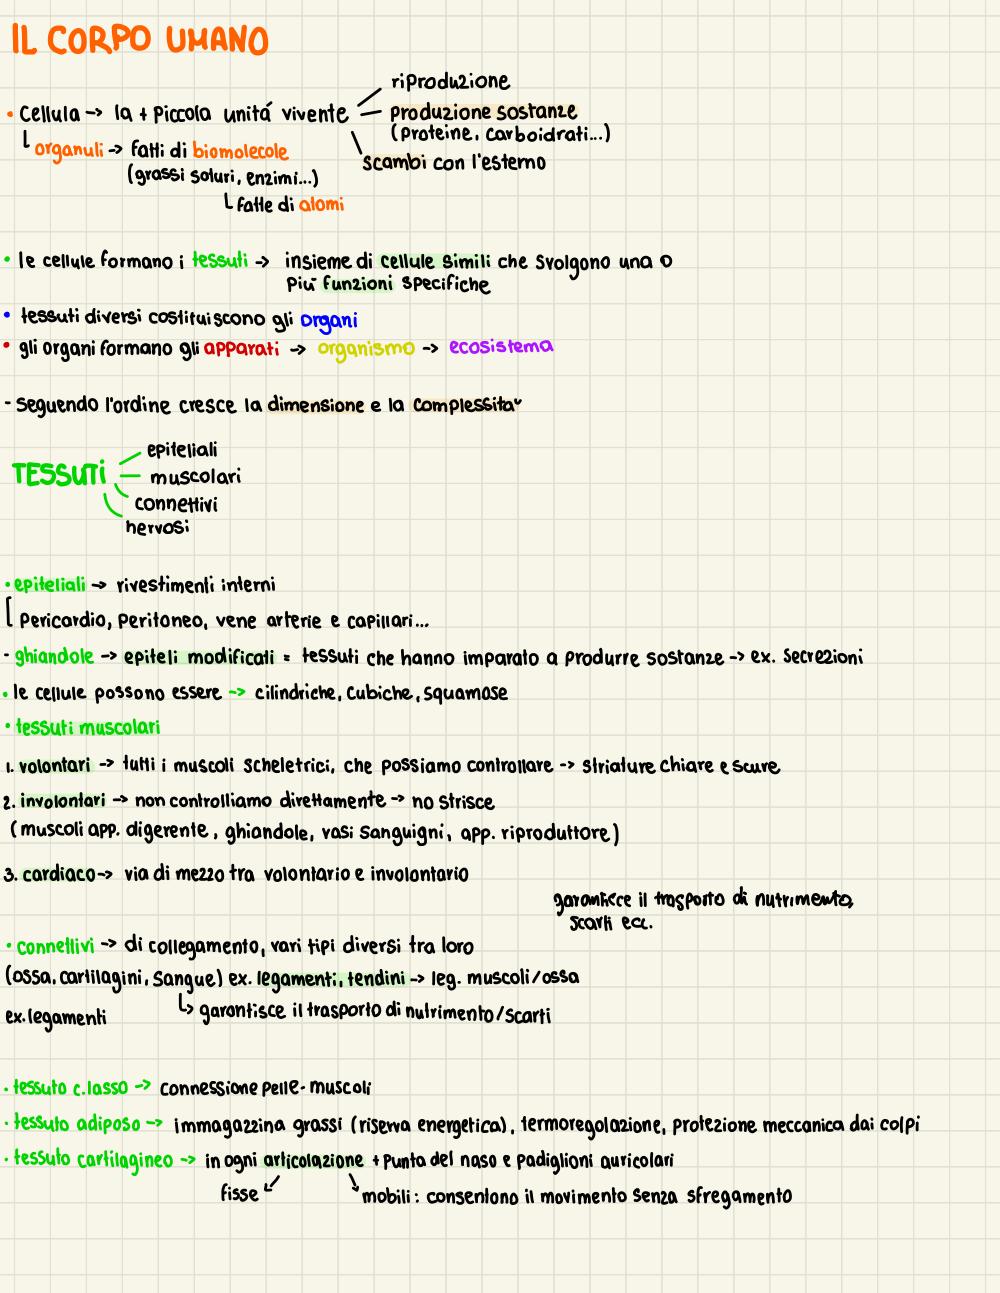 IL CORPO UMANO
riproduzione
• Cellula -> la + piccola unitá vivente
produzione sostanze
(proteine, carboidrati...)
scambi con l'esterno
organuli -> fatti di biomolecole
(grassi soluri, enzimi...)
fatte di atomi
• le cellule formano i tessuti -> insieme di cellule simili che svolgono una o
più funzioni specifiche
• tessuti diversi costituiscono gli organi
• gli organi formano gli apparati -> organismo -> ecosistema
- seguendo l'ordine cresce la dimensione e la complessità
TESSUTI
epiteliali
muscolari
connettivi
nervosi
• epiteliali -> rivestimenti interni
pericardio, peritoneo, vene arterie e capillari...
- ghiandole -> epiteli modificati = tessuti che hanno imparato a produrre sostanze -> ex. secrezioni
• le cellule possono essere -> cilindriche, cubiche, squamose
• tessuti muscolari
1. volontari -> tutti i muscoli scheletrici, che possiamo controllare -> striature chiare e scure
2. involontari -> non controlliamo direttamente -> no strisce
(muscoli app. digerente, ghiandole, vasi sanguigni, app. riproduttore)
3. cardiaco -> via di mezzo tra volontario e involontario
garantisce il trasporto di nutrimento,
scarti ecc.
• connettivi -> di collegamento, vari tipi diversi tra loro
(ossa, cartilagini, sangue) ex. legamenti, tendini -> leg. muscoli/ossa
ex. legamenti
-> garantisce il trasporto di nutrimento/scarti
• tessuto c. lasso -> connessione pelle-muscoli
• tessuto adiposo -> immagazzina grassi (riserva energetica), termoregolazione, protezione meccanica dai colpi
• tessuto cartilagineo -> in ogni articolazione + punta del naso e padiglioni auricolari
fisse
mobili: consentono il movimento senza sfregamento